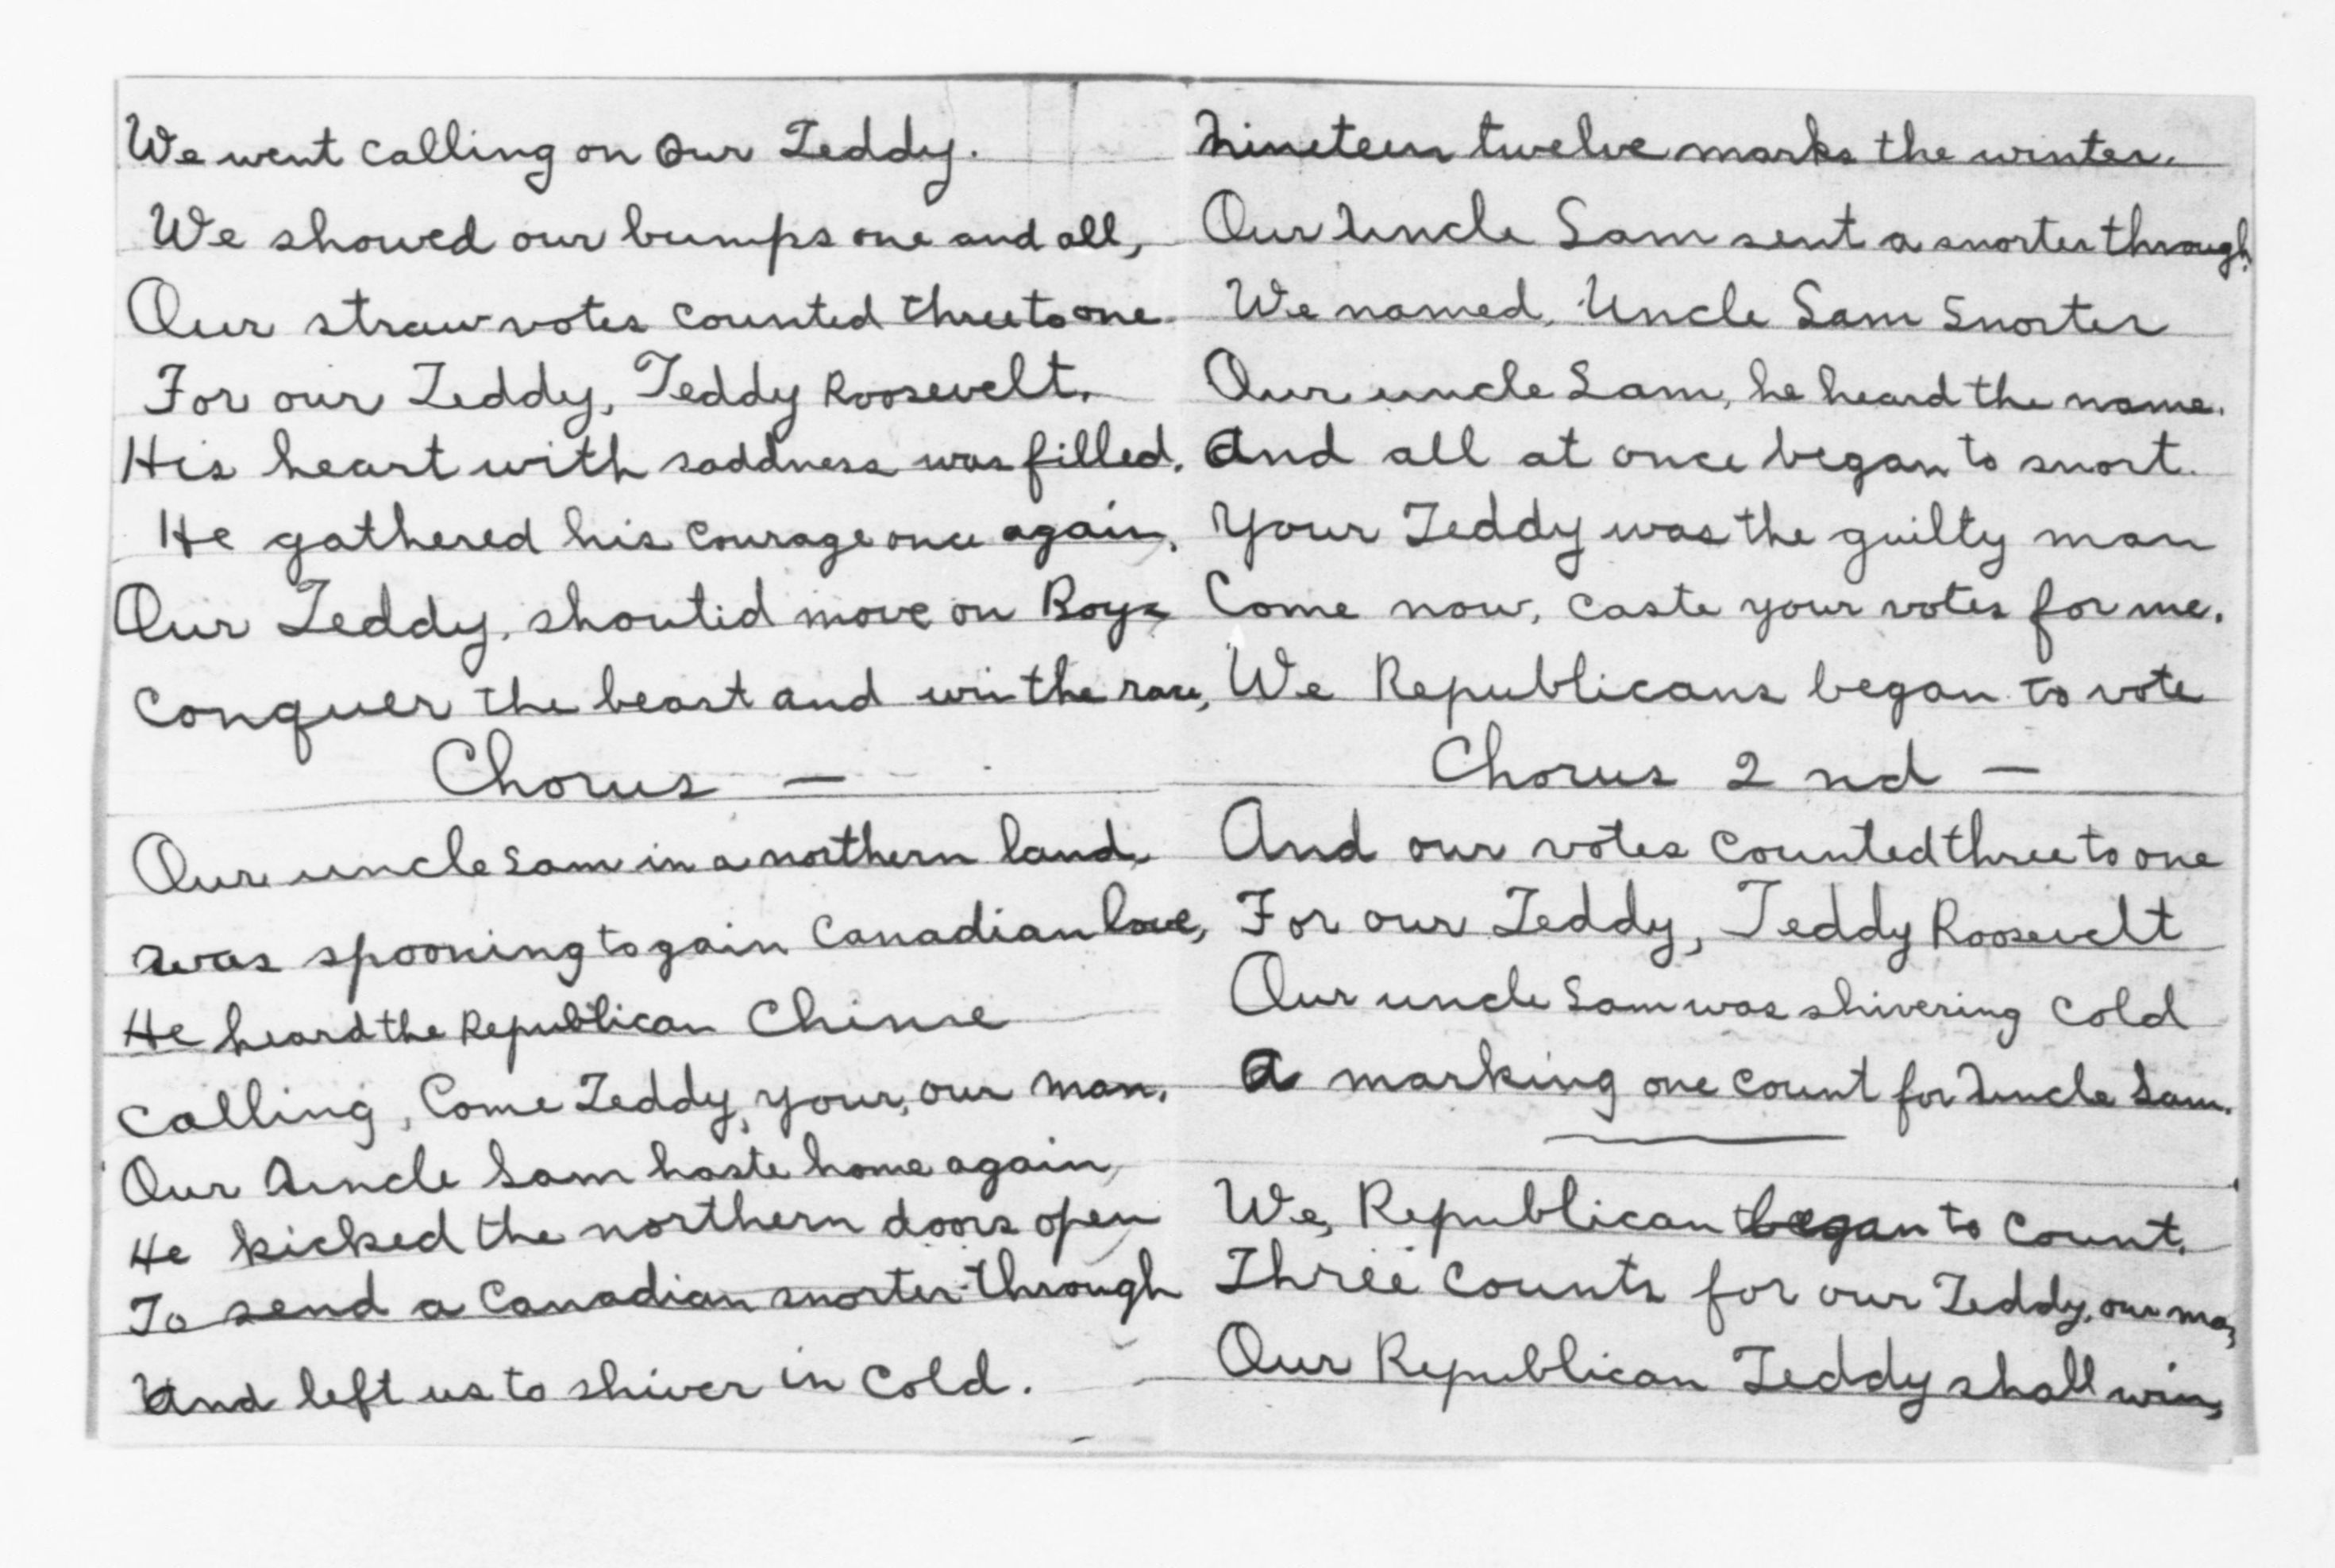 We went calling on our Teddy.
We showed our bumps one and all,
Our straw votes counted three to one
For our Teddy, Teddy Roosevelt.
His heart with saddness was filled.
He gathered his courage once again,
Our Teddy, shoutid move on Boys
Conquer the beast and win the race,
Chorus —
Our uncle Sam in a northern land,
was spooning to gain Canadian love,
He heard the Republican Chime
Calling, Come Teddy, your, our man.
Our Uncle Sam haste home again,
He kicked the northern doors open
To send a Canadian snorter through
And left us to shiver in cold.
Nineteen twelve marks the winter.
Our Uncle Sam sent a snorter through.
We named, Uncle Sam Snorter
Our uncle Sam, he heard the name.
And all at once began to snort.
Your Teddy was the guilty man
Come now, caste your votes for me.
We Republicans began to vote
Chorus 2nd —
And our votes counted three to one
For our Teddy, Teddy Roosevelt
Our uncle Sam was shivering cold
A marking one count for Uncle Sam.
We, Republican began to count.
Three counts for our Teddy, our man,
Our Republican Teddy shall win,